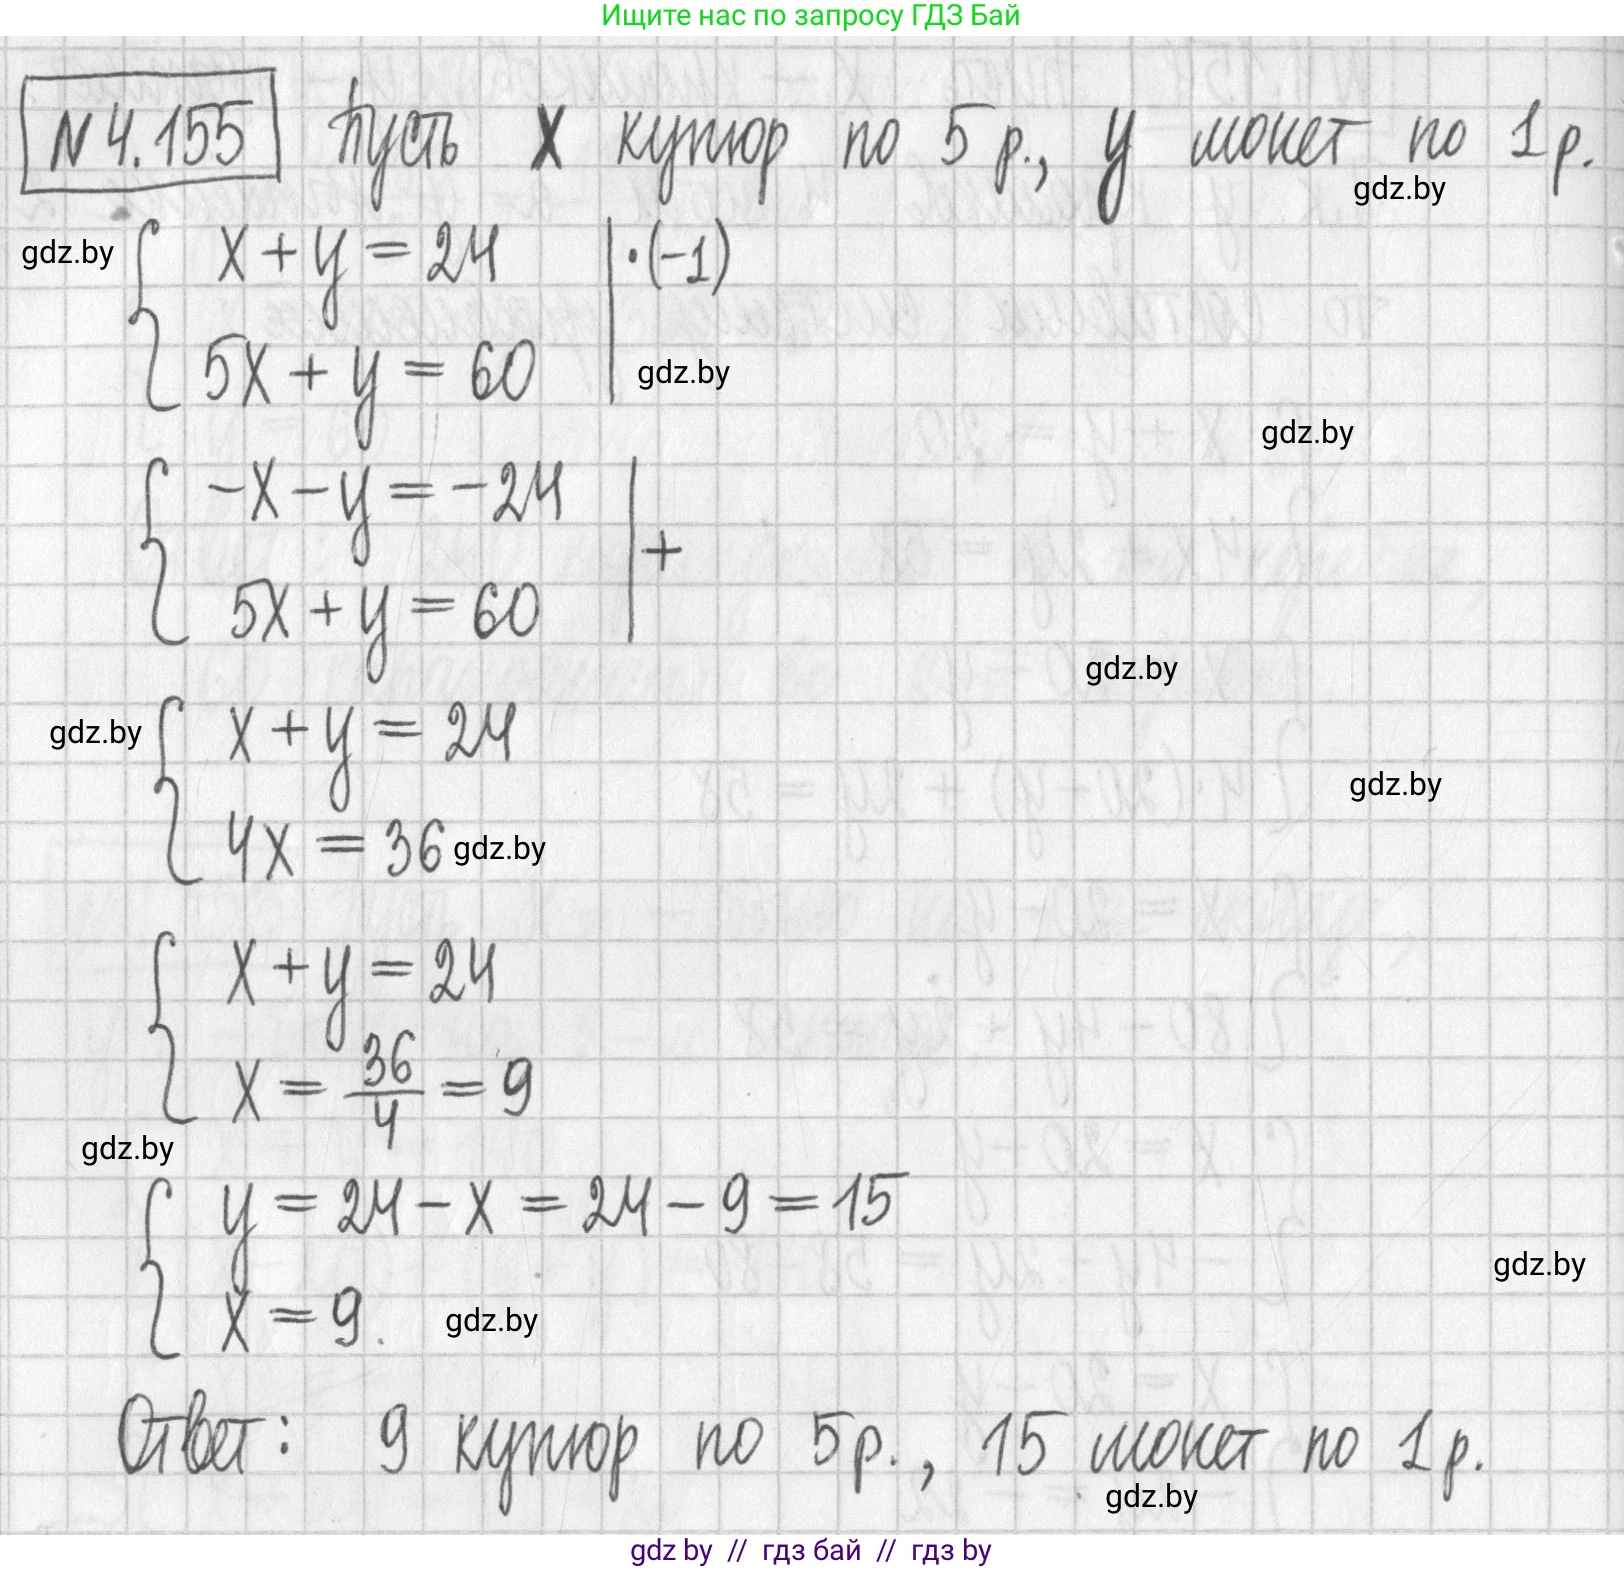 Ищите нас по запросу ГДЗ Бай
N 4.155 Пусть x купюр по 5 р., y монет по 1 р.
gdz.by
gdz.by { x + y = 24 | · (-1)
5x + y = 60 gdz.by
gdz.by
{ -x - y = -24 | +
5x + y = 60
gdz.by
gdz.by { x + y = 24
gdz.by
4x = 36 gdz.by
{ x + y = 24
x = 36/4 = 9
gdz.by
{ y = 24 - x = 24 - 9 = 15
gdz.by
x = 9. gdz.by
Ответ: 9 купюр по 5 р., 15 монет по 1 р.
gdz.by
gdz by // гдз бай // гдз by